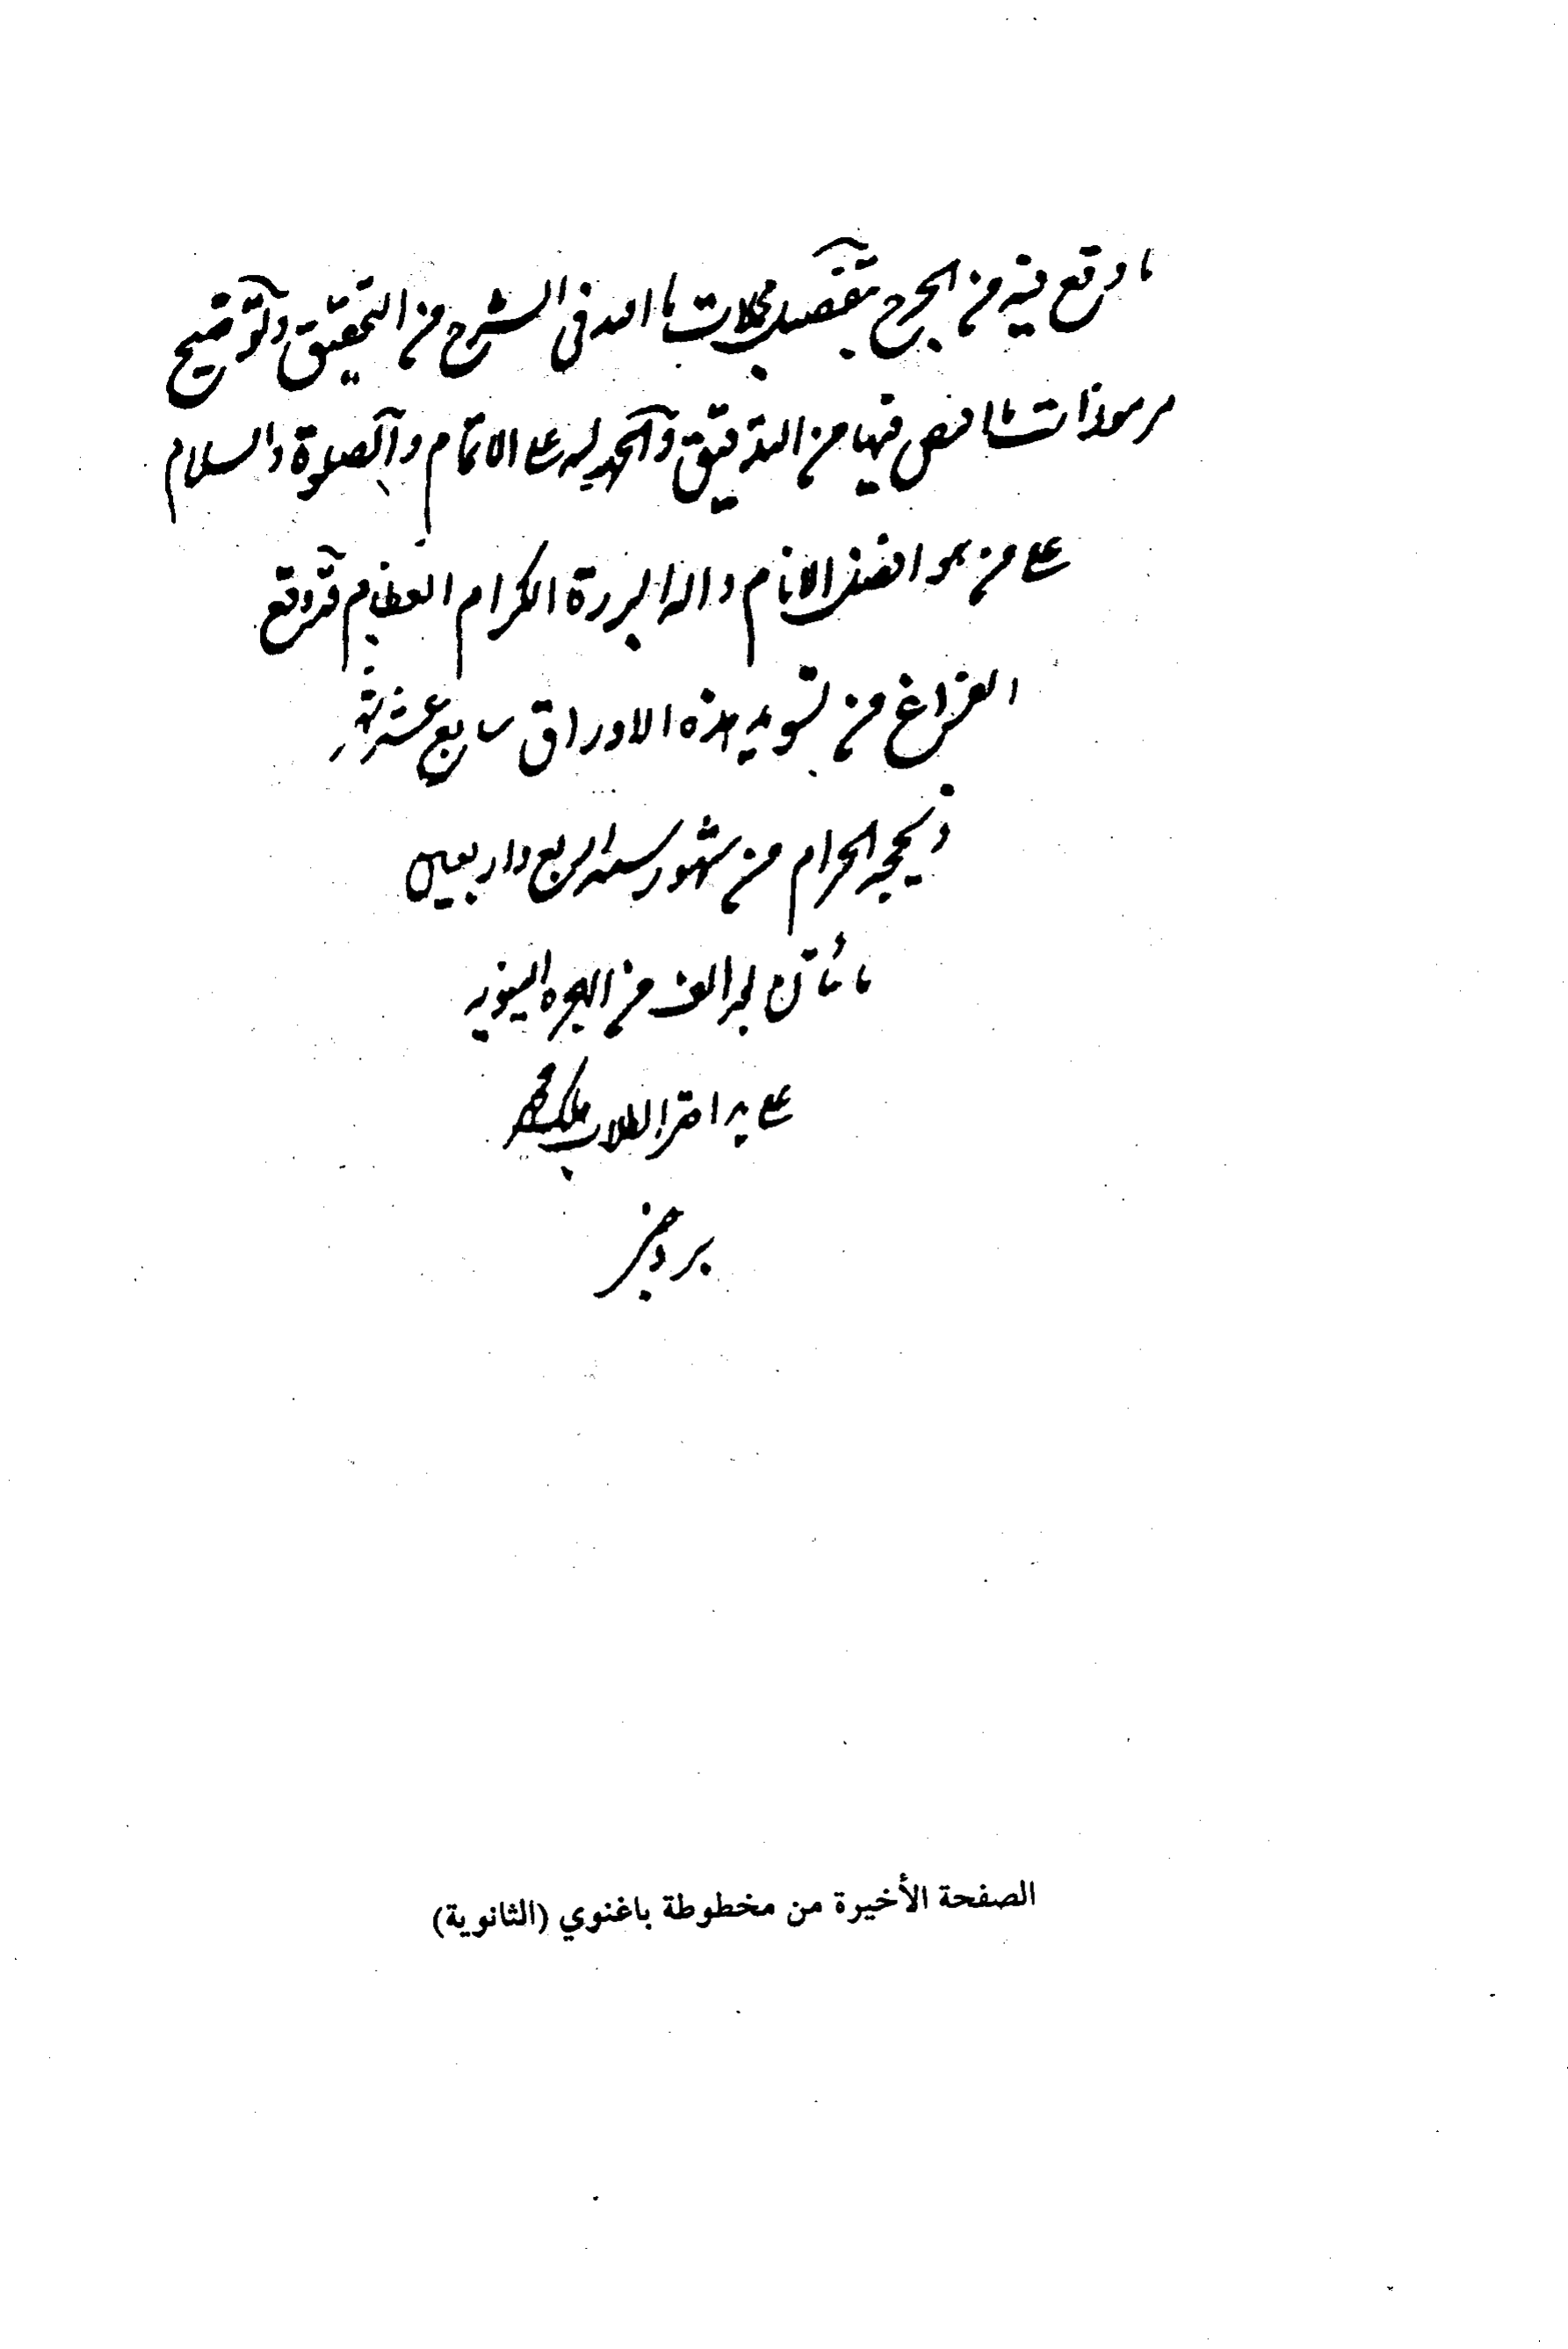 ما وقع فيه من الجرح بتفصيل مجملات ما افيد في الشرح من التحقيق وتوضيح
مرموزات ما فيها من التدقيق والحمد لله على الاتمام والصلوة والسلام
على من هو افضل الانام واله البررة الكرام العظام قد وقع
الفراغ من تسويد هذه الاوراق سابع عشر شهر
ذيحجه الحرام من شهور سنه اربع واربعين
مائتان بعد الف من الهجره النبويه
على يد احقر الطلاب ملك محمد
الصفحة الأخيرة من مخطوطة باغنوي (الثانوية)